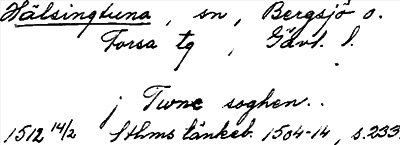 Hälsingtuna, sn, Bergsjö o.
Forsa tg, Gävl. l.
j Twne soghen..
1512 14/2 Sthms tänkeb. 1504-14, s. 233.